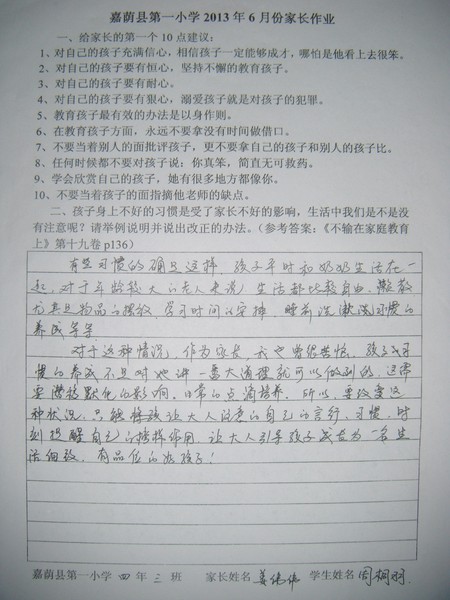 嘉荫县第一小学2013年6月份家长作业
一、给家长的第一个10点建议：
1、对自己的孩子充满信心，相信孩子一定能够成才，哪怕是他看上去很笨。
2、对自己的孩子要有恒心，坚持不懈的教育孩子。
3、对自己的孩子要有耐心。
4、对自己的孩子要有狠心，溺爱孩子就是对孩子的犯罪。
5、教育孩子最有效的办法是以身作则。
6、在教育孩子方面，永远不要拿没有时间做借口。
7、不要当着别人的面批评孩子，更不要拿自己的孩子和别人的孩子比。
8、任何时候都不要对孩子说：你真笨，简直无可救药。
9、学会欣赏自己的孩子，她有很多地方都像你。
10、不要当着孩子的面指摘他老师的缺点。
二、孩子身上不好的习惯是受了家长不好的影响，生活中我们是不是没
有注意呢？请举例说明并说出改正的办法。（参考答案：《不输在家庭教育
上》第十九卷p136）
有些习惯的确是这样，孩子平时和奶奶生活在一
起，对于年龄较大的老人来说，生活都比较自由、散散
尤其是物品的摆放、学习时间的安排、睡前洗漱洗习惯的
养成等等。
对于这种情况，作为家长，我也曾很苦恼，孩子好习
惯的养成不是对他讲一番大道理就可以做到的，还需
要潜移默化的影响，日常的点滴培养。所以，要改变这
种状况，只能转变让大人注意的自己的言行、习惯，时
刻提醒自己的榜样作用，让大人引导孩子成长为一名生
活细致、有品位的好孩子！
嘉荫县第一小学 四 年 三 班 家长姓名 姜伟伟 学生姓名 周桐羽